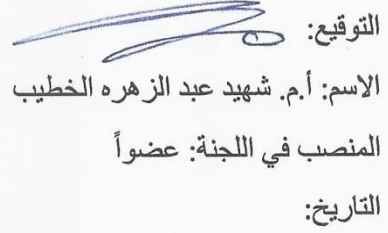 التوقيع:
الاسم: أ.م. شهيد عبد الزهره الخطيب
المنصب في اللجنة: عضواً
التاريخ: